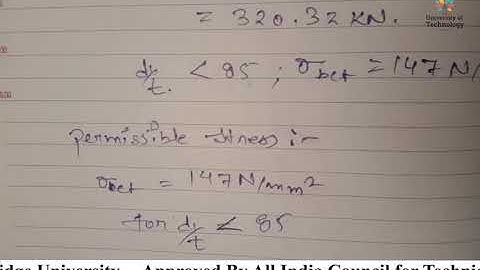 University of
Technology
= 320.32 KN.
d₁/t < 85 ; σbct = 147 N/
permissible stress :-
σbct = 147 N/mm²
for d₁/t < 85
idge University - Approved By All India Council for Techni